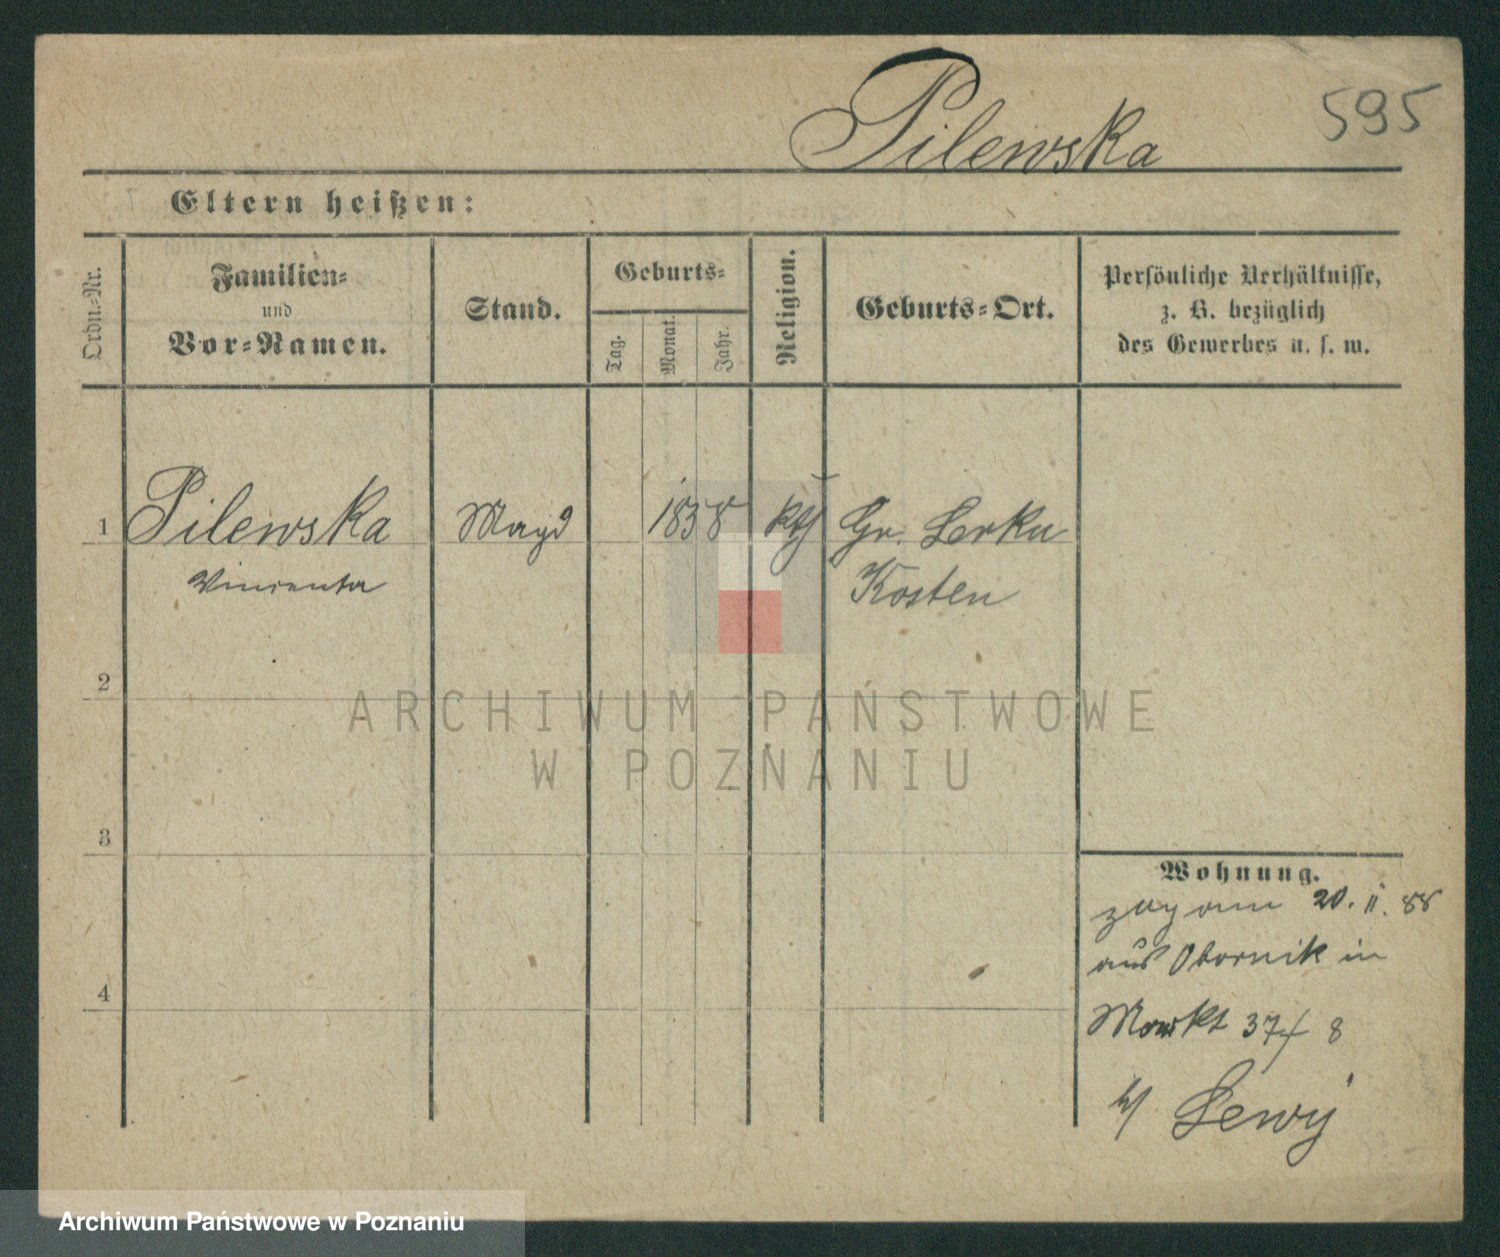 595
Pilewska
Eltern heißen:
Ordn.-Nr.
Familien-
und
Vor-Namen.
Stand.
Geburts-
Tag.
Monat.
Jahr.
Religion.
Geburts-Ort.
Persönliche Verhältnisse,
z. B. bezüglich
des Gewerbes u. s. w.
1 Pilewska Magd 1858 kth Gr. Lerka
Vincenta Kosten
2
3
4
Wohnung.
zug am 20. II. 88
aus Obornik in
Markt 37/8
b/ Lewy
ARCHIWUM PAŃSTWOWE
W POZNANIU
Archiwum Państwowe w Poznaniu